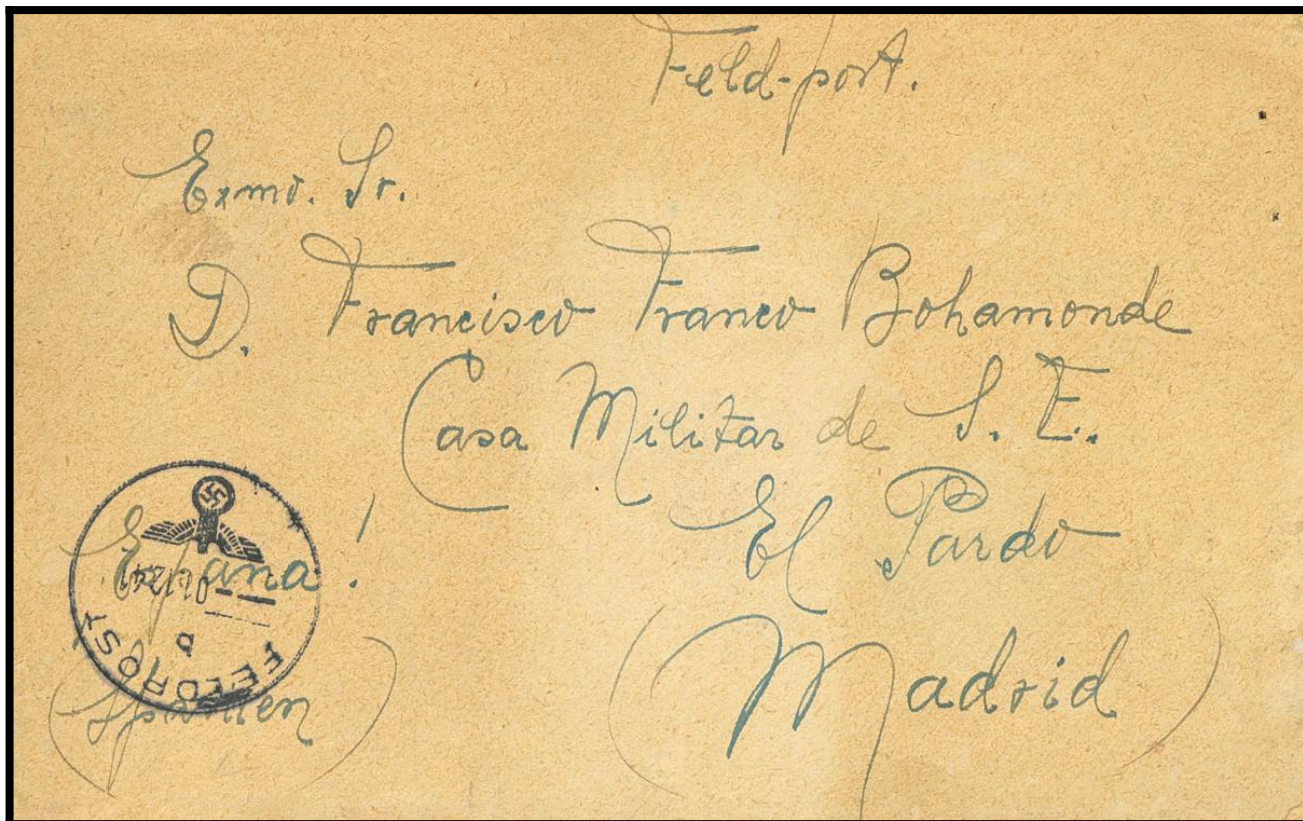 Feld-post.
Exmo. Sr.
D. Francisco Franco Bohamonde
Casa Militar de S. E.
El Pardo
(Madrid)
España!
(Spanien)
FELDPOST
b